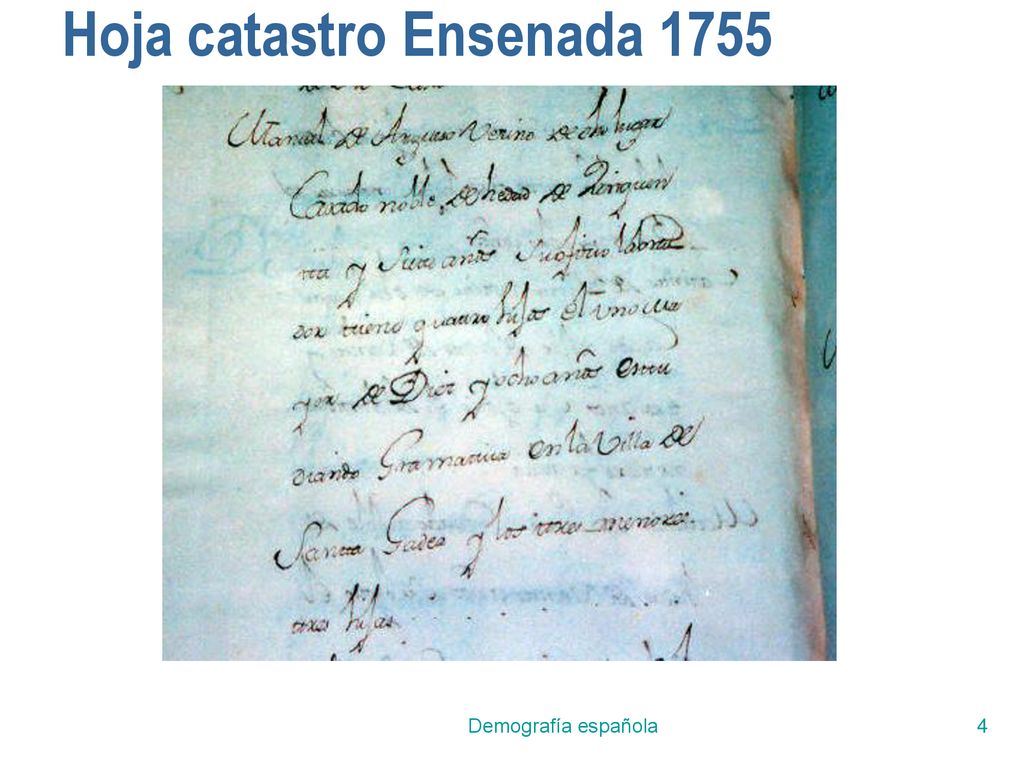 Hoja catastro Ensenada 1755
Manuel de Argueso Vezino de dho lugar
Casado noble, de hedad de Zinquen
tta y Siete años su ofizio labra
dor tiene quatro hijos el uno ma
yor de Diez y ocho años estu
diando Gramatica en la Villa de
Santta Gadea y los ttres menores
ttres hijas
Demografía española
4